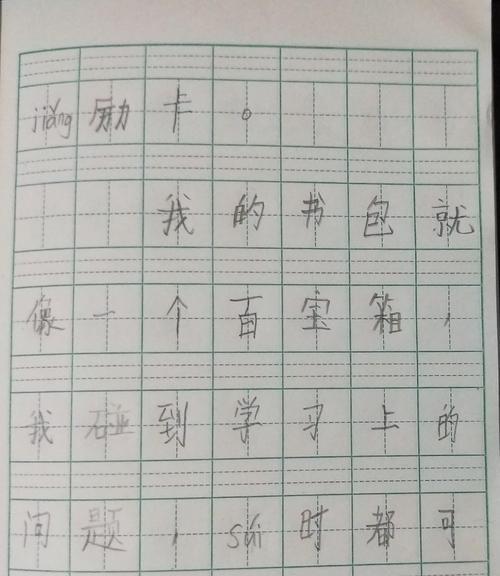 jiǎng励卡。
我的书包就
像一个百宝箱，
我碰到学习上的
问题，súi时都可